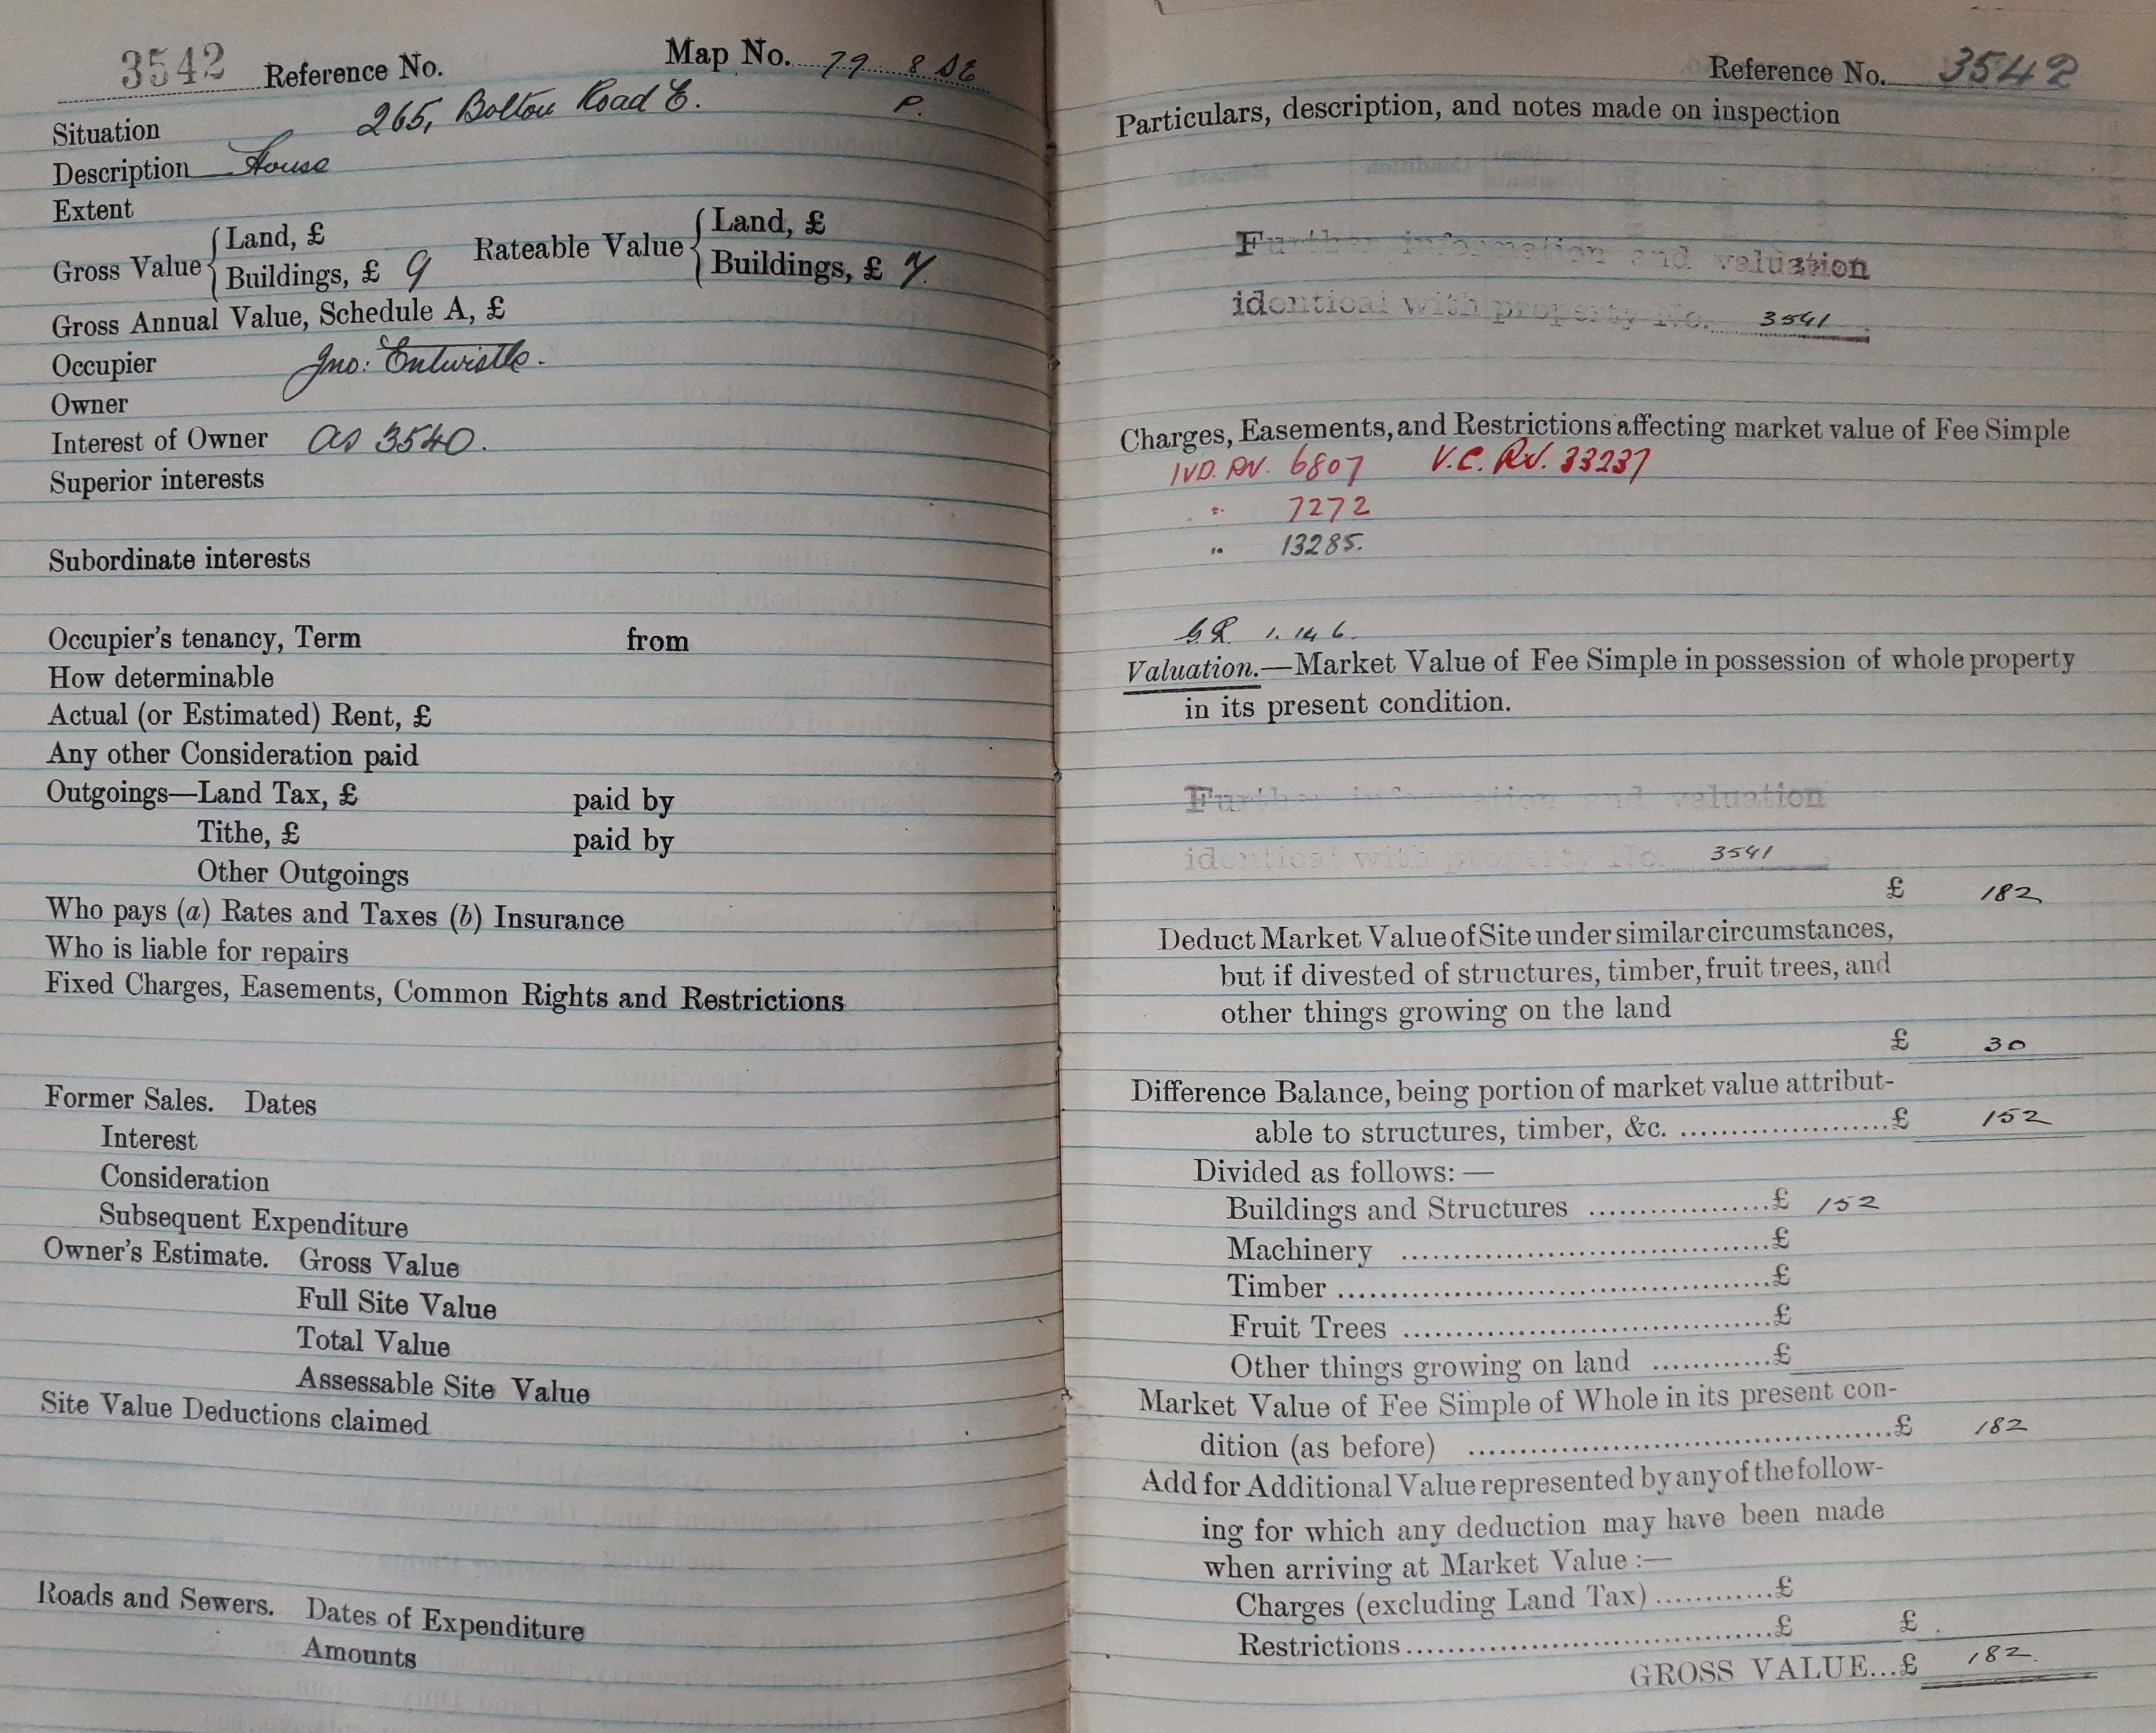 3542 Reference No. Map No. 79 8 SE
Situation 265, Bolton Road E. P.
Description House
Extent
Gross Value { Land, £
Buildings, £ 9
Rateable Value { Land, £
Buildings, £ 7.
Gross Annual Value, Schedule A, £
Occupier Jno: Entwistle.
Owner
Interest of Owner as 3540.
Superior interests
Subordinate interests
Occupier's tenancy, Term from
How determinable
Actual (or Estimated) Rent, £
Any other Consideration paid
Outgoings—Land Tax, £ paid by
Tithe, £ paid by
Other Outgoings
Who pays (a) Rates and Taxes (b) Insurance
Who is liable for repairs
Fixed Charges, Easements, Common Rights and Restrictions
Former Sales. Dates
Interest
Consideration
Subsequent Expenditure
Owner's Estimate. Gross Value
Full Site Value
Total Value
Assessable Site Value
Site Value Deductions claimed
Roads and Sewers. Dates of Expenditure
Amounts
Reference No. 3542
Particulars, description, and notes made on inspection
Further information and valuation
identical with property No. 3541
Charges, Easements, and Restrictions affecting market value of Fee Simple
IVD. RV. 6807 V.C. RV. 33237
" 7272
" 13285.
G.R. 1. 14 6.
Valuation.—Market Value of Fee Simple in possession of whole property
in its present condition.
Further information and valuation
identical with property No. 3541
£ 182
Deduct Market Value of Site under similar circumstances,
but if divested of structures, timber, fruit trees, and
other things growing on the land
£ 30
Difference Balance, being portion of market value attribut-
able to structures, timber, &c. ....................£ 152
Divided as follows: —
Buildings and Structures .................£ 152
Machinery ..................................£
Timber ........................................£
Fruit Trees ..................................£
Other things growing on land ...........£
Market Value of Fee Simple of Whole in its present con-
dition (as before) ........................................£ 182
Add for Additional Value represented by any of the follow-
ing for which any deduction may have been made
when arriving at Market Value :—
Charges (excluding Land Tax) ...........£
Restrictions....................................£ £
GROSS VALUE...£ 182.